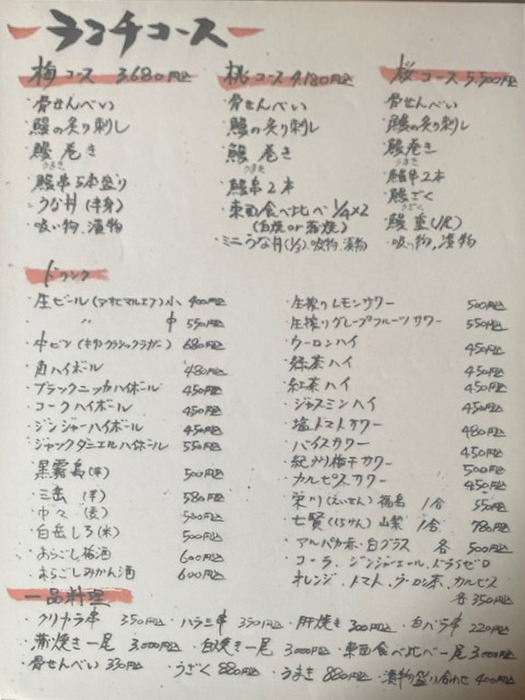 ランチコース
梅コース 3,680円込
・骨せんべい
・鰻の炙り刺し
・鰻巻き
うまき
・鰻串5本盛り
・うな丼(半身)
・吸い物、漬物
桃コース 4,180円込
・骨せんべい
・鰻の炙り刺し
・鰻巻き
うまき
・鰻串2本
・東西食べ比べ 1/4×2
(白焼 or 蒲焼)
・ミニうな丼(1/3) 吸物、漬物
桜コース 5,500円込
・骨せんべい
・鰻の炙り刺し
・鰻巻き
うまき
・鰻串2本
・鰻ざく
うざく
・鰻重(1尾)
・吸い物、漬物
ドリンク
・生ビール(アサヒマルエフ)小 400円込
〃 中 550円込
・中ビン(キリンクラシックラガー) 680円込
・角ハイボール 480円込
・ブラックニッカハイボール 450円込
・コークハイボール 450円込
・ジンジャーハイボール 450円込
・ジャックダニエルハイボール 550円込
・黒霧島(芋) 500円込
・三岳(芋) 580円込
・中々(麦) 500円込
・白岳しろ(米) 500円込
・あらごし梅酒 600円込
・あらごしみかん酒 600円込
・生搾りレモンサワー 500円込
・生搾りグレープフルーツサワー 550円込
・ウーロンハイ 450円込
・緑茶ハイ 450円込
・紅茶ハイ 450円込
・ジャスミンハイ 450円込
・塩トマトサワー 480円込
・バイスサワー 450円込
・紀州梅干サワー 500円込
・カルピスサワー 450円込
・栄川(えいせん)福島 1合 550円込
・七賢(しちけん)山梨 1合 780円込
・アルパカ赤・白グラス 各500円込
・コーラ、ジンジャエール、ドライゼロ
オレンジ、トマト、ウーロン茶、カルピス
各350円込
一品料理
・クリカラ串 350円込 ・ハラミ串 350円込 ・肝焼き 300円込 ・白バラ串 220円込
・蒲焼き一尾 3,000円込 ・白焼き一尾 3,000円込 ・東西食べ比べ一尾 3,000円込
・骨せんべい 330円込 ・うざく 880円込 ・うまき 880円込 ・漬物盛り合わせ 400円込